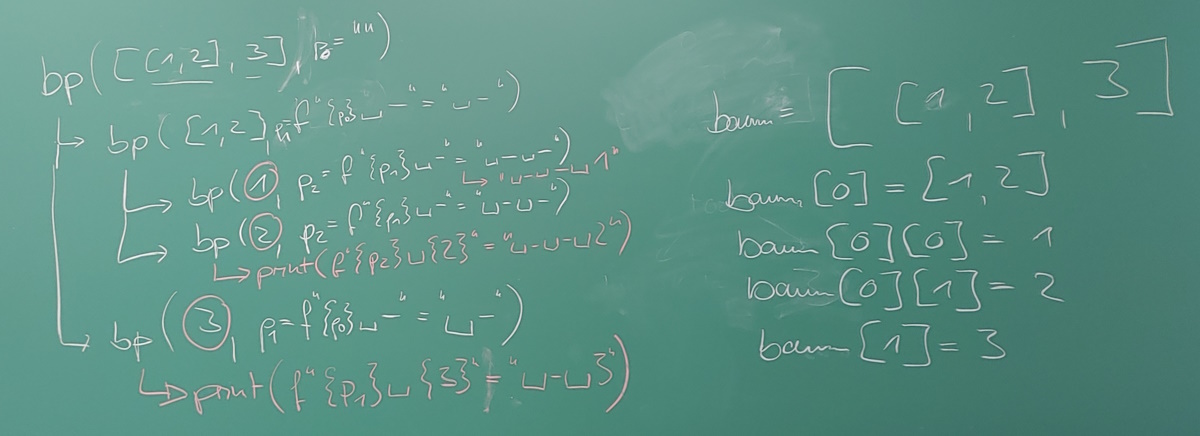 bp([[1,2],3], p₀="")
↳ bp([1,2], p₁=f"{p₀}␣-"="␣-")
↳ bp(1, p₂=f"{p₁}␣-"="␣-␣-")
↳ "␣-␣-␣1"
↳ bp(2, p₂=f"{p₁}␣-"="␣-␣-")
↳ print(f"{p₂}␣{2}"="␣-␣-␣2")
↳ bp(3, p₁=f"{p₀}␣-"="␣-")
↳ print(f"{p₁}␣{3}"="␣-␣3")
baum=[[1,2],3]
baum[0]=[1,2]
baum[0][0]=1
baum[0][1]=2
baum[1]=3